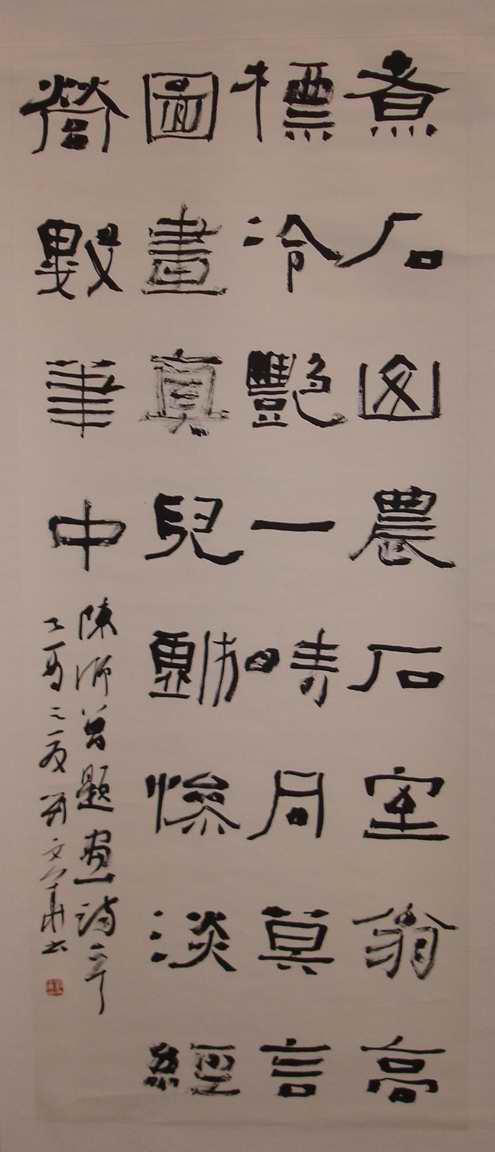 煮石山農石室翁高
標冷艷一時同莫言
圖畫真兒戲慘淡經
營數筆中
陳師曾題畫詩
乙酉之夏文華書